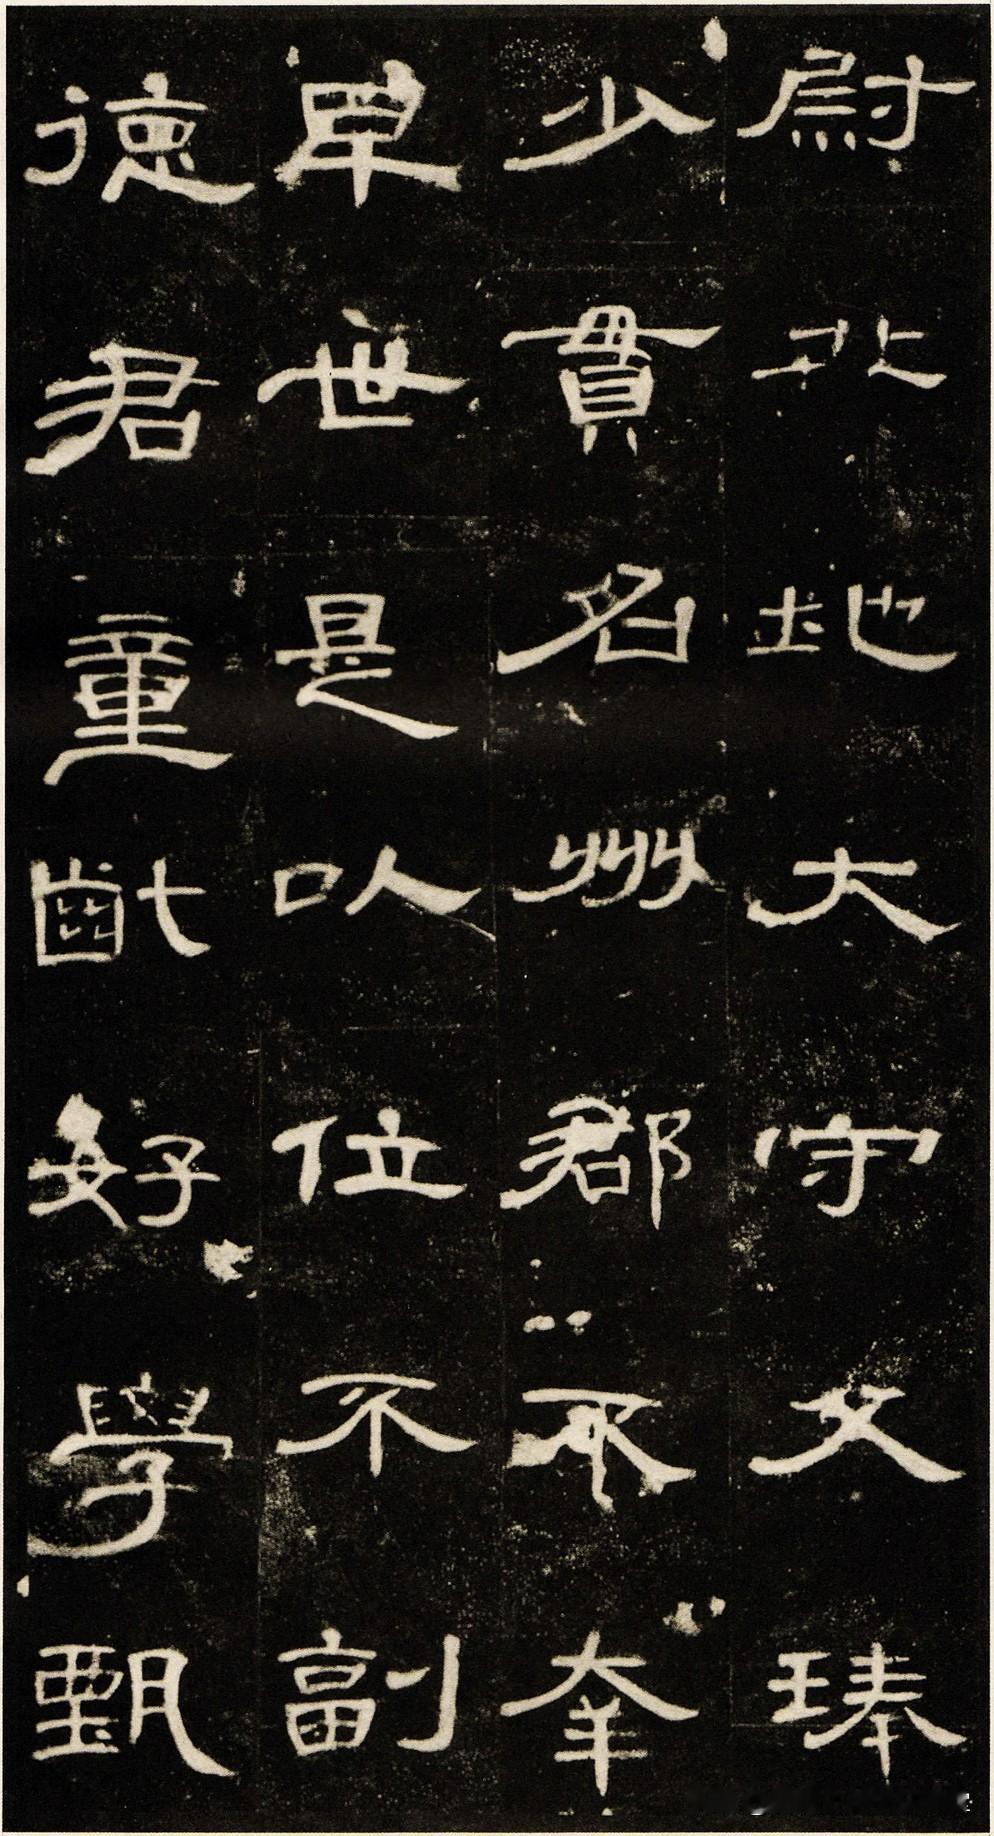 尉北地大守父琫
少貫名州郡不幸
早世是以位不副
德君童齔好學甄